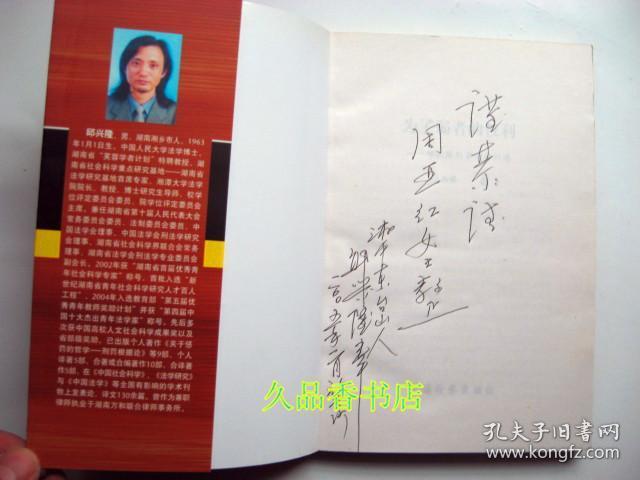 邱兴隆，男，湖南湘乡市人，1963
年1月1日生。中国人民大学法学博士，
湖南省“芙蓉学者计划”特聘教授，湖
南省社会科学重点研究基地——湖南省
法学研究基地首席专家，湘潭大学法学
院院长、教授、博士研究生导师，校学
位评定委员会委员、院学位评定委员会
主席。兼任湖南省第十届人民代表大会
常务委员会委员、法制委员会委员，中
国法学会理事、中国法学会刑法学研究
会理事、湖南省社会科学界联合会常务
理事、湖南省法学会刑法学专业委员会
副会长。2002年获“湖南省首届优秀青
年社会科学专家”称号，首批入选“新
世纪湖南省青年社会科学研究人才百人
工程”，2004年入选教育部“第五届优
秀青年教师奖励计划”并获“第四届中
国十大杰出青年法学家”称号。先后多
次获中国高校人文社会科学成果奖以及
省部级奖励，已出版个人著作《关于惩
罚的哲学——刑罚根据论》等9部，个人
译著5部，合著或合编著作10部，合译著
作5部，在《中国社会科学》、《法学研究》
与《中国法学》等全国有影响的学术刊
物上发表论、译文130余篇。曾作为兼职
律师执业于湖南方和联合律师事务所。
谨恭请
周亚红女士
湘中东台山人
邱兴隆
久品香书店
孔夫子旧书网
www.kongfz.com